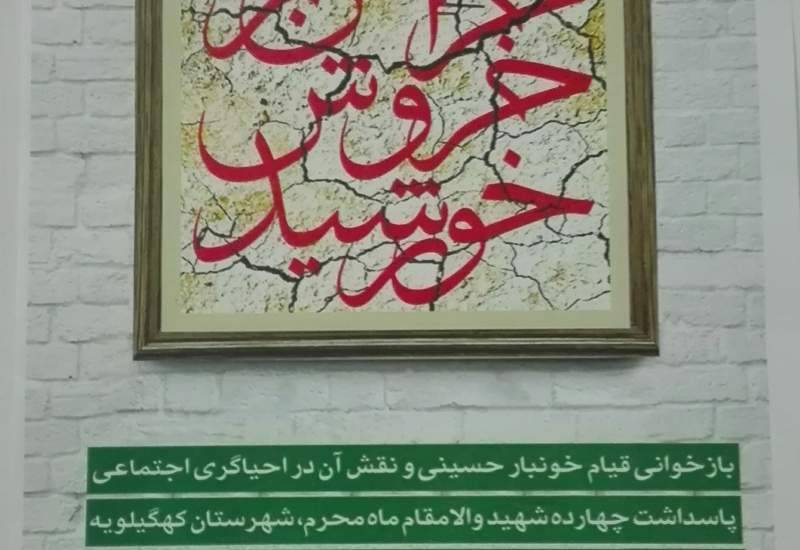 خروش
خورشید
بازخوانی قیام خونبار حسینی و نقش آن در احیاگری اجتماعی
پاسداشت چهارده شهید والامقام ماه محرم، شهرستان کهگیلویه